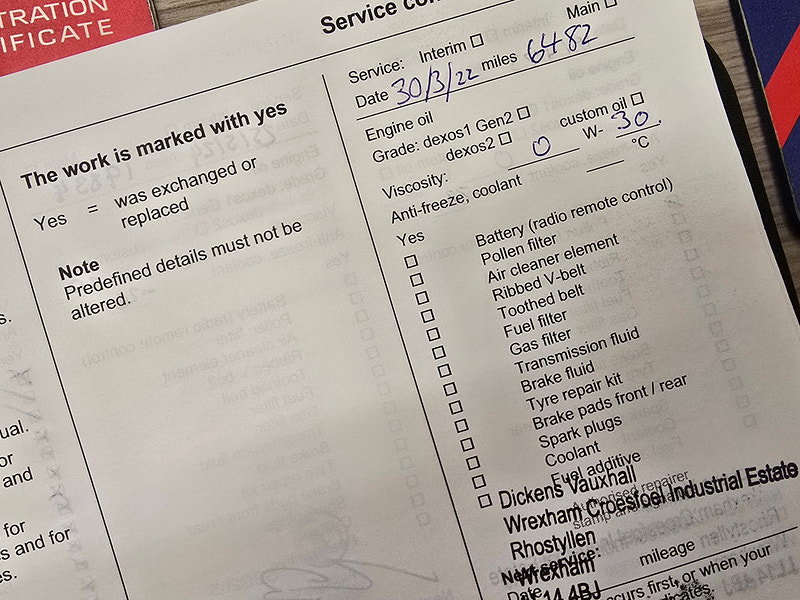 TRATION
IFICATE
Service con
The work is marked with yes
Yes = was exchanged or
replaced
Note
Predefined details must not be
altered.
s.
ual.
or
and
for
s and for
es.
Service: Interim □ Main □
Date 30/3/22 miles 6482
Engine oil
Grade: dexos1 Gen2 □ custom oil □
dexos2 □
Viscosity: 0 W- 30
Anti-freeze, coolant °C
Yes
□ Battery (radio remote control)
□ Pollen filter
□ Air cleaner element
□ Ribbed V-belt
□ Toothed belt
□ Fuel filter
□ Gas filter
□ Transmission fluid
□ Brake fluid
□ Tyre repair kit
□ Brake pads front / rear
□ Spark plugs
□ Coolant
□ Fuel additive
Authorised repairer
stamp and
Dickens Vauxhall
Wrexham Croesfoel Industrial Estate
Rhostyllen
Wrexham
LL14 4BJ
Next service:
Date mileage
occurs first, or when your
indicates.